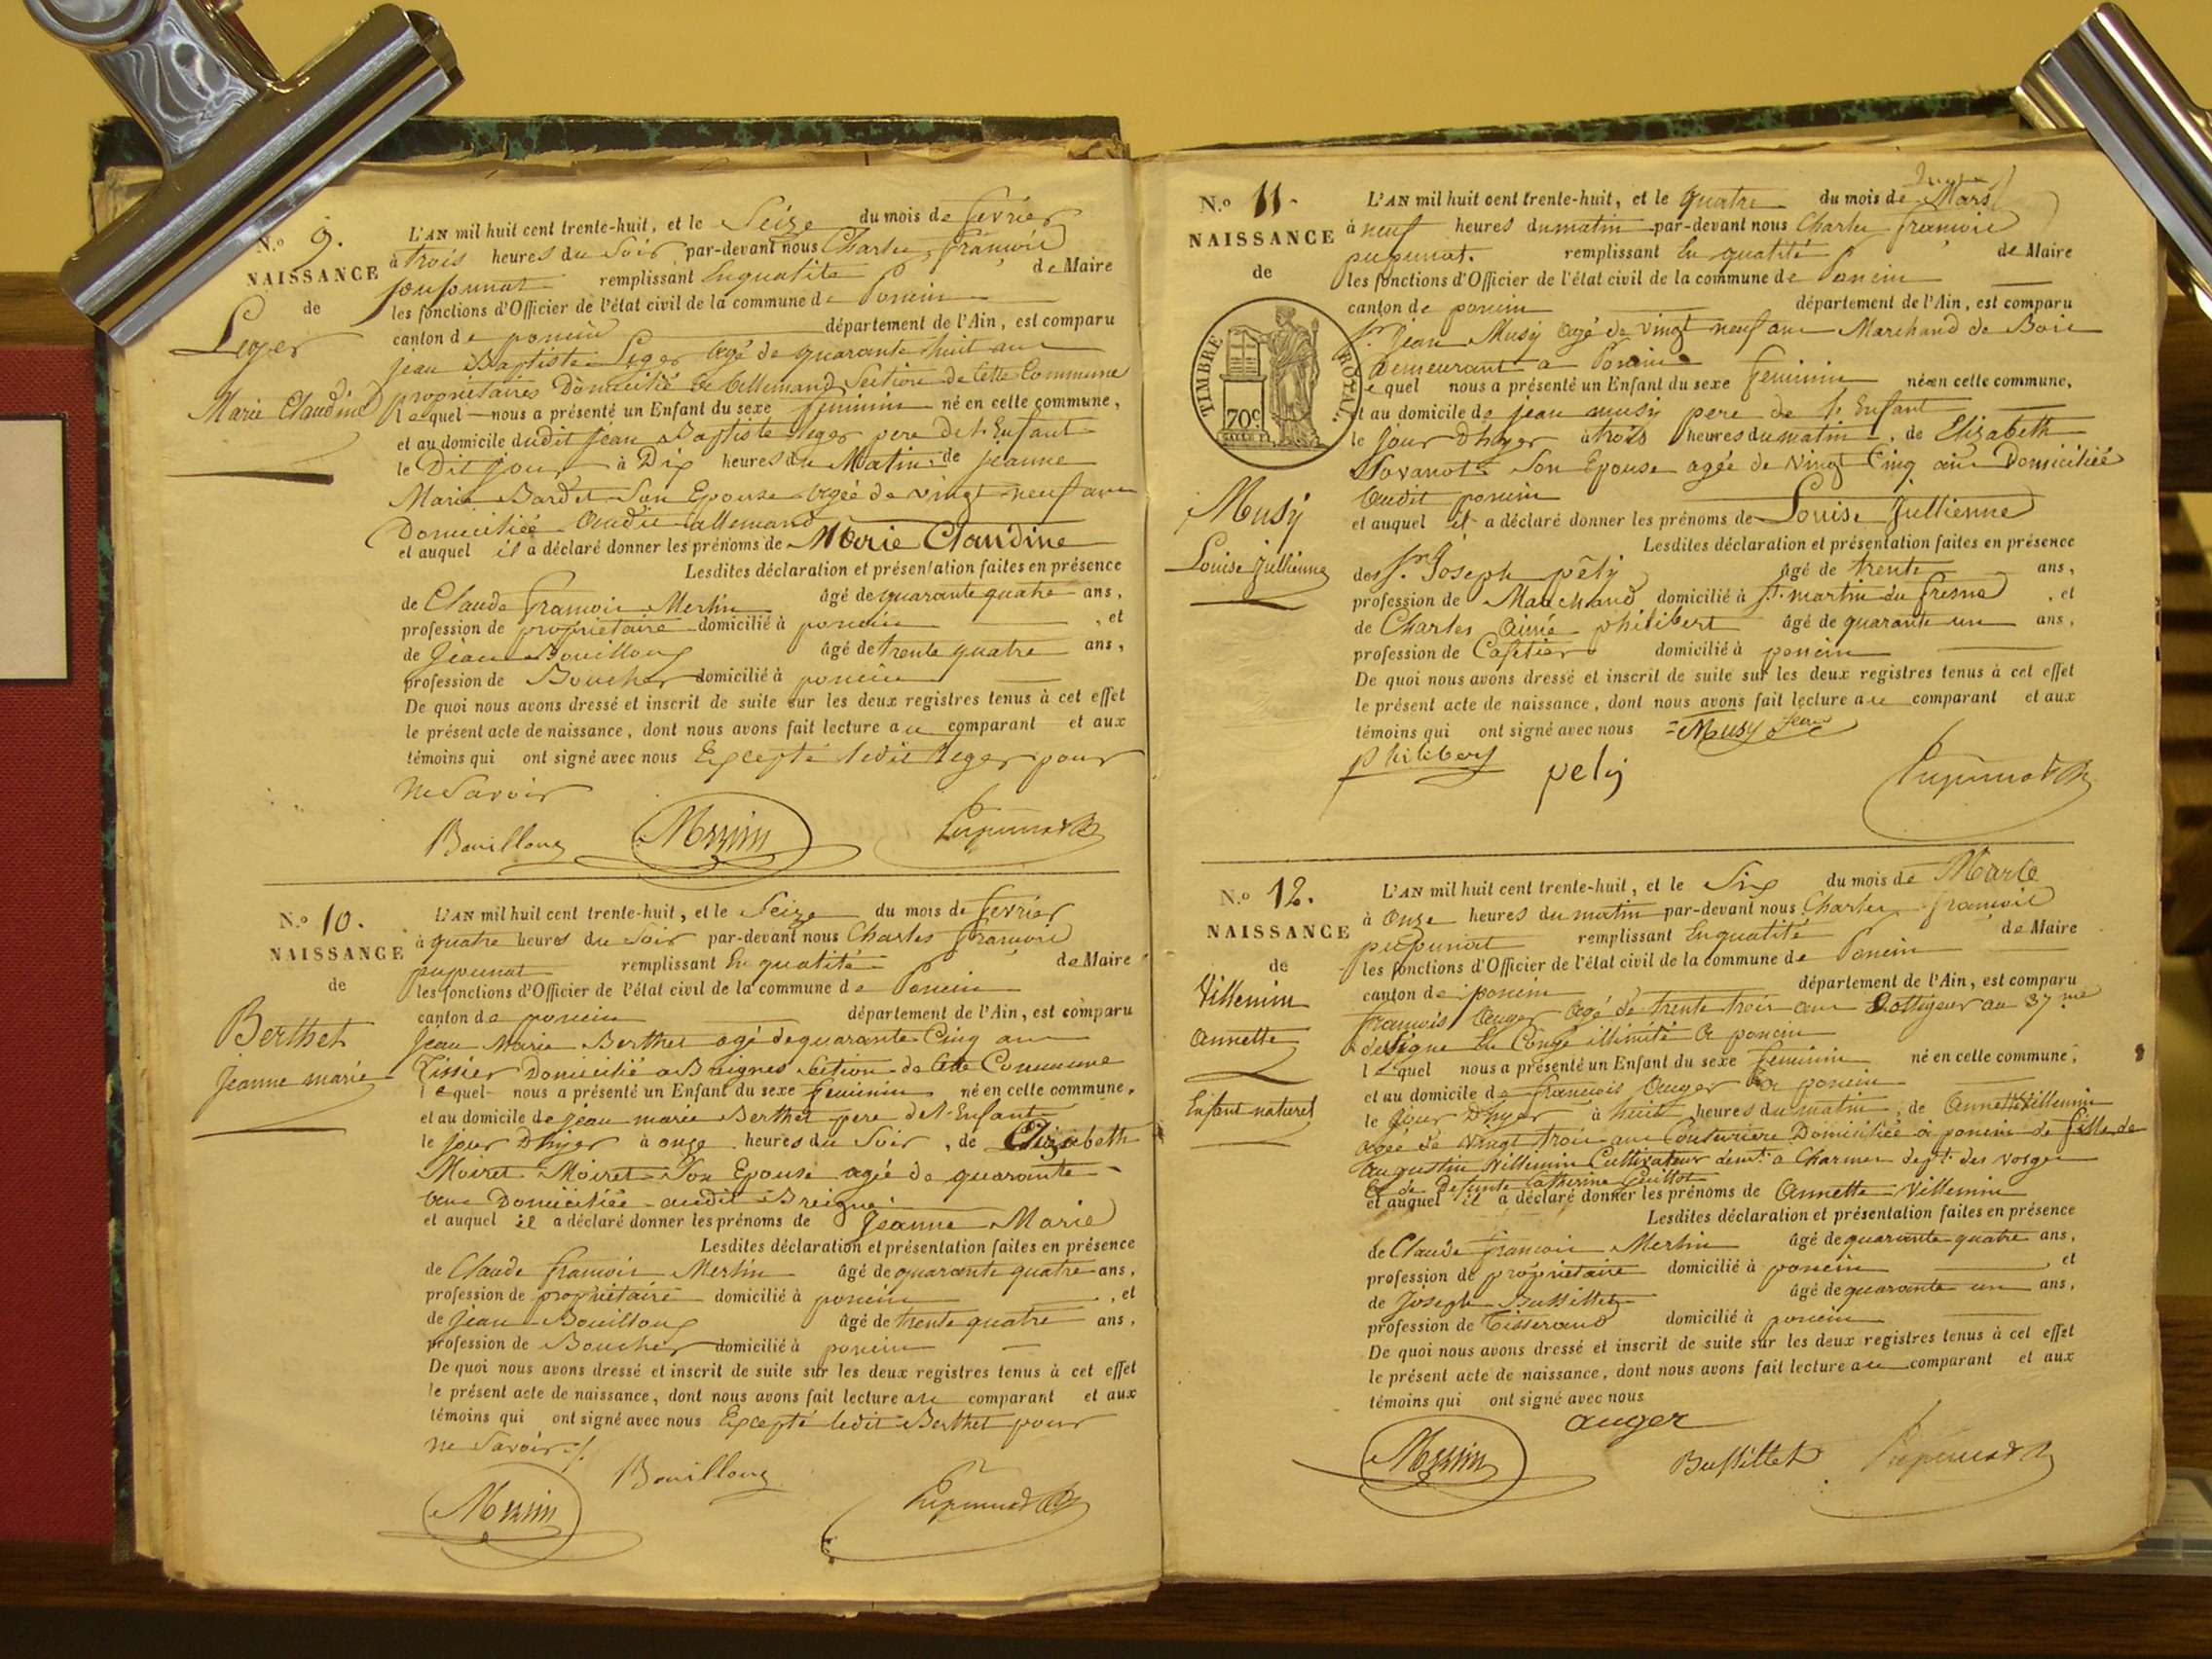 N.o 9.
NAISSANCE
de
Leger
Marie Claudine
L'AN mil huit cent trente-huit, et le Seize du mois de fevrier
à trois heures du Soir par-devant nous Charles françois
pupunat remplissant En qualité de Maire
les fonctions d'Officier de l'état civil de la commune de Poncin
canton de poncin département de l'Ain, est comparu
jean Baptiste Leger agé de quarante huit ans
propriétaires Domicilié a allemand Section de Cette Commune
lequel nous a présenté un Enfant du sexe feminin né en cette commune,
et au domicile dudit jean Baptiste Leger pere de l'Enfant
le Dit jour à Dix heures du Matin de jeanne
Marie Bardet Son Epouse agée de vingt neuf ans
Domiciliée audit allemand
et auquel il a déclaré donner les prénoms de Marie Claudine
Lesdites déclaration et présentation faites en présence
de Claude françois Merlin âgé de quarante quatre ans,
profession de propriétaire domicilié à poncin , et
de Jean Bouilloux âgé de trente quatre ans,
profession de Boucher domicilié à poncin
De quoi nous avons dressé et inscrit de suite sur les deux registres tenus à cet effet
le présent acte de naissance, dont nous avons fait lecture au comparant et aux
témoins qui ont signé avec nous Excepté ledit Leger pour
ne Savoir
Bouilloux Merlin Pupunat
N.o 10.
NAISSANCE
de
Berthet
jeanne marie
L'AN mil huit cent trente-huit, et le Seize du mois de fevrier
à quatre heures du Soir par-devant nous Charles françois
pupunat remplissant En qualité de Maire
les fonctions d'Officier de l'état civil de la commune de Poncin
canton de poncin département de l'Ain, est comparu
Jean Marie Berthet agé de quarante Cinq ans
Tissier Domicilié a Breignes Section de Cette Commune
lequel nous a présenté un Enfant du sexe feminin né en cette commune,
et au domicile de jean marie Berthet pere de l'Enfant
le jour D'hyer à onze heures du Soir, de Elizabeth
Moiret Moiret Son Epouse agée de quarante
ans Domiciliée audit Breigne
et auquel il a déclaré donner les prénoms de Jeanne Marie
Lesdites déclaration et présentation faites en présence
de Claude françois Merlin âgé de quarante quatre ans,
profession de propriétaire domicilié à poncin , et
de Jean Bouilloux âgé de trente quatre ans,
profession de Boucher domicilié à poncin
De quoi nous avons dressé et inscrit de suite sur les deux registres tenus à cet effet
le présent acte de naissance, dont nous avons fait lecture au comparant et aux
témoins qui ont signé avec nous Excepté ledit Berthet pour
ne Savoir
Bouilloux
Merlin Pupunat
N.o 11.
NAISSANCE
de
TIMBRE ROYAL.
70c
Musy
Louise Jullienne
L'AN mil huit cent trente-huit, et le quatre du mois de Mars
à neuf heures du matin par-devant nous Charles françois
pupunat. remplissant En qualité de Maire
les fonctions d'Officier de l'état civil de la commune de Poncin
canton de poncin département de l'Ain, est comparu
Sr. Jean Musy agé de vingt neuf ans Marchand de Bois
Demeurant a Poncin
lequel nous a présenté un Enfant du sexe feminin né en cette commune,
et au domicile de jean musy pere de l'Enfant
le Jour D'hyer à trois heures du matin, de Elizabeth
Son Epouse agée de vingt Cinq ans Domiciliée
audit poncin
et auquel il a déclaré donner les prénoms de Louise Jullienne
Lesdites déclaration et présentation faites en présence
de Sr. Joseph pély âgé de trente ans,
profession de Marchand domicilié à St. martin du fresne , et
de Charles aimé philibert âgé de quarante un ans,
profession de Cafetier domicilié à poncin
De quoi nous avons dressé et inscrit de suite sur les deux registres tenus à cet effet
le présent acte de naissance, dont nous avons fait lecture au comparant et aux
témoins qui ont signé avec nous Musy Jean
philibert pely Pupunat
N.o 12.
NAISSANCE
de
Villemin
annette
Enfant naturel
L'AN mil huit cent trente-huit, et le Six du mois de Mars
à Onze heures du matin par-devant nous Charles françois
pupunat remplissant En qualité de Maire
les fonctions d'Officier de l'état civil de la commune de Poncin
canton de poncin département de l'Ain, est comparu
françois auger agé de trente trois ans Voltigeur au 37me
de Ligne En Congé illimité a poncin
lequel nous a présenté un Enfant du sexe feminin né en cette commune,
et au domicile de francois auger a poncin
le Jour D'hyer à huit heures du matin, de annette Villemin
agée de vingt trois ans Couturiere Domiciliée à poncin fille de
augustin Villemin Cultivateur demt. a Charmes dept. des vosges
et de Defunte Catherine Guillot
et auquel il a déclaré donner les prénoms de annette Villemin
Lesdites déclaration et présentation faites en présence
de Claude françois Merlin âgé de quarante quatre ans,
profession de propriétaire domicilié à poncin et
de Joseph Bussillet âgé de quarante un ans,
profession de Tisserand domicilié à poncin
De quoi nous avons dressé et inscrit de suite sur les deux registres tenus à cet effet
le présent acte de naissance, dont nous avons fait lecture au comparant et aux
témoins qui ont signé avec nous
auger
Merlin Bussillet Pupunat